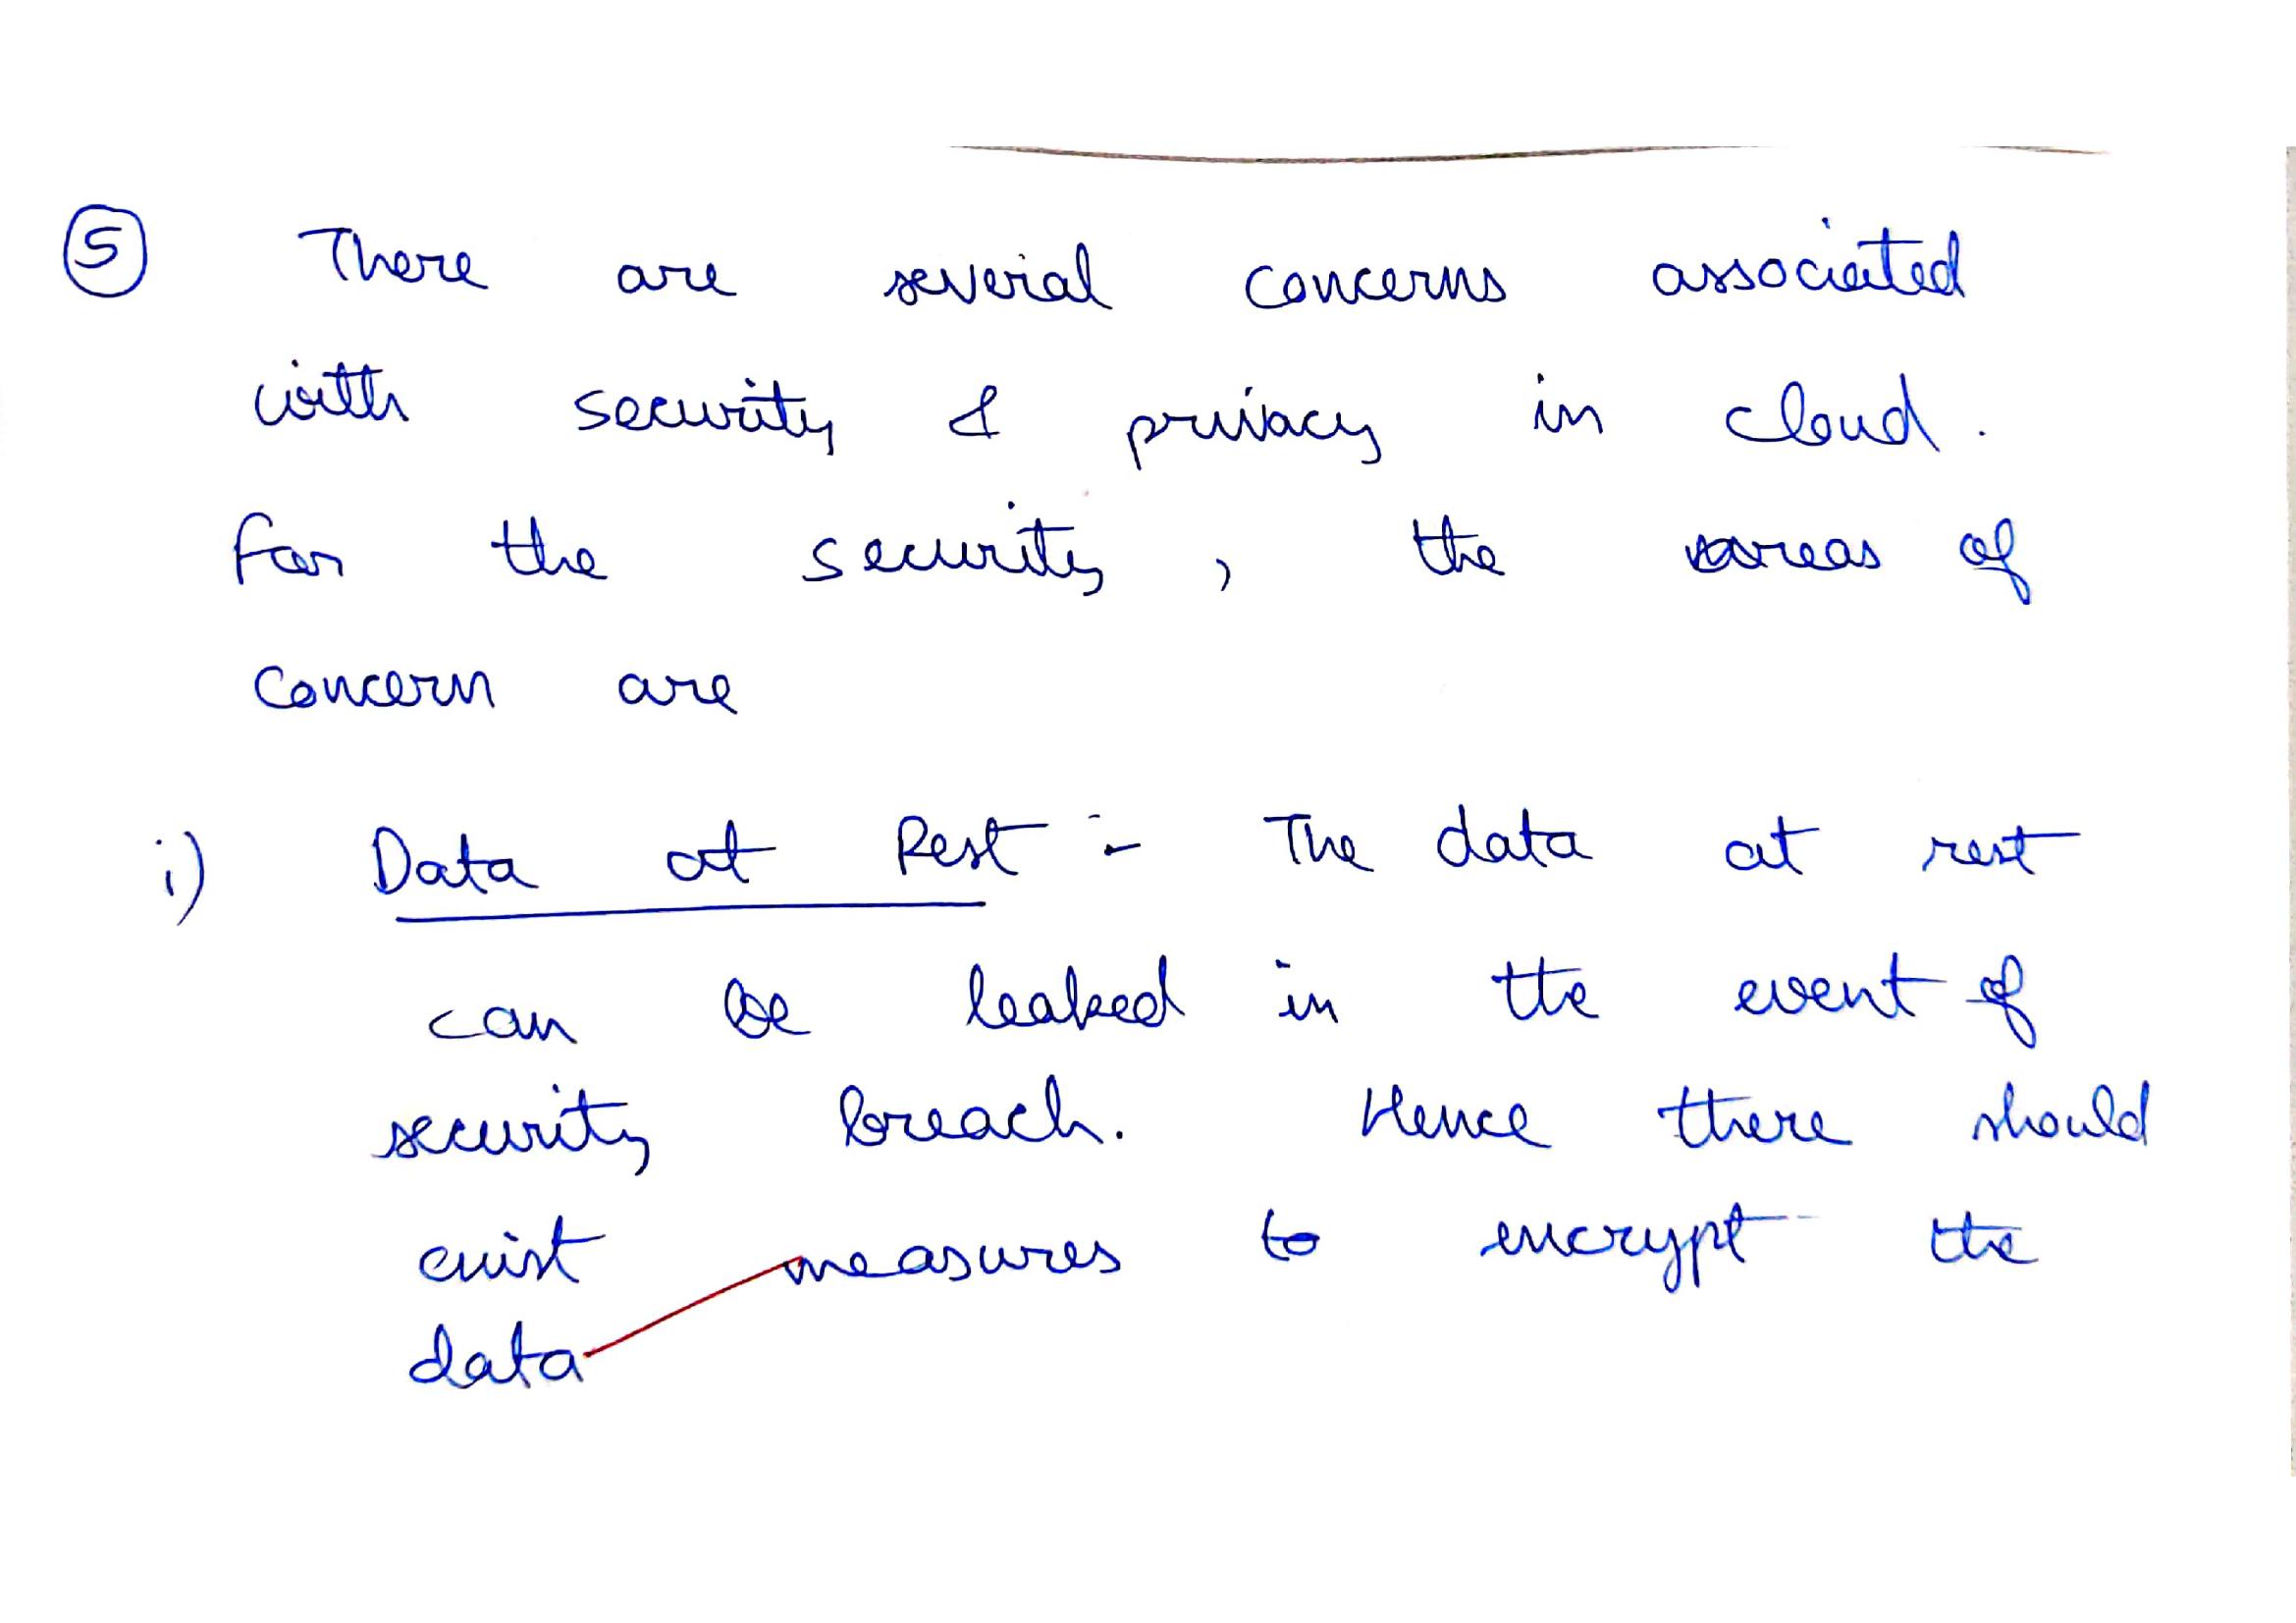 5 There are several concerns associated
with security & privacy in cloud.
for the security, the areas of
concern are
i) Data at Rest :- The data at rest
can be leaked in the event of
security breach. Hence there should
exist measures to encrypt the
data